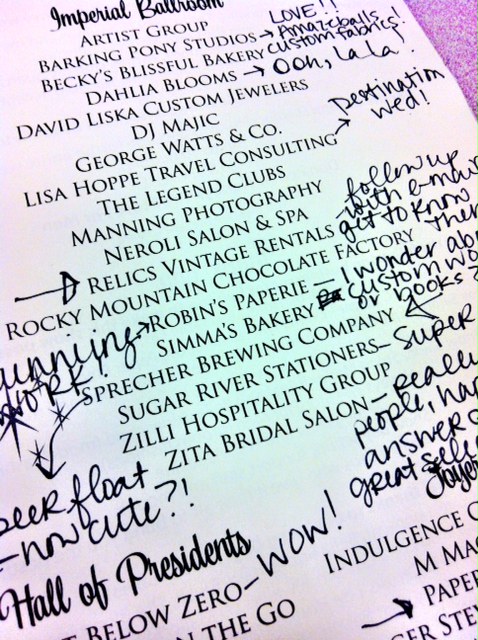 Imperial Ballroom
Artist Group
Barking Pony Studios → LOVE!!
Amazeballs
custom fabrics!
Becky's Blissful Bakery
Dahlia Blooms → Ooh, la la!
David Liska Custom Jewelers
DJ Majic
George Watts & Co.
Lisa Hoppe Travel Consulting → Destination
wed!
The Legend Clubs
Manning Photography
Neroli Salon & Spa
→ Relics Vintage Rentals - follow up
with e-mail
get to know
them
Rocky Mountain Chocolate Factory
Robin's Paperie - I wonder
custom
or books?
Simma's Bakery
work!
Sprecher Brewing Company
beer float
- how cute?!
Sugar River Stationers - super
Zilli Hospitality Group
Zita Bridal Salon - really
people,
answer
great
Hall of Presidents
Below Zero - WOW!
n the Go
Indulgence
M